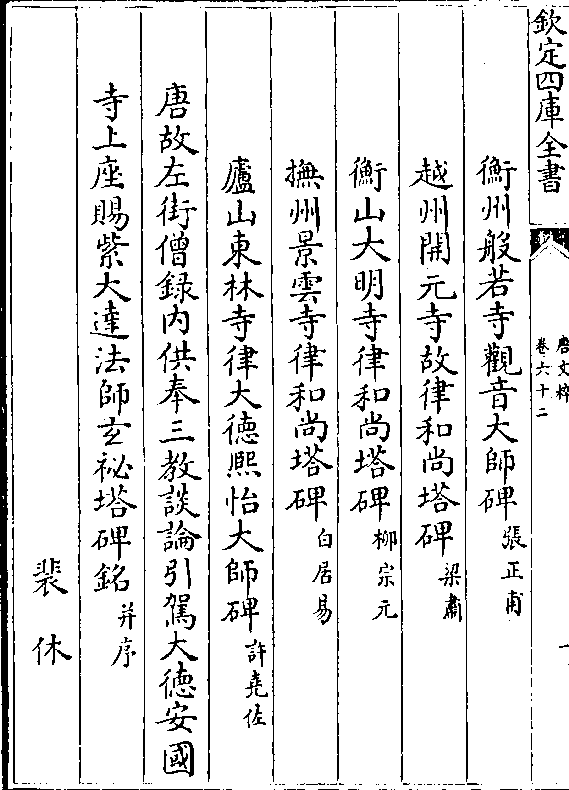 欽定四庫全書
唐文粹
卷六十二
衡州般若寺觀音大師碑張正甫
越州開元寺故律和尚塔碑梁肅
衡山大明寺律和尚塔碑柳宗元
撫州景雲寺律和尚塔碑白居易
廬山東林寺律大德熙怡大師碑許堯佐
唐故左街僧録内供奉三教談論引駕大徳安國
寺上座賜紫大達法師玄祕塔碑銘并序
裴休